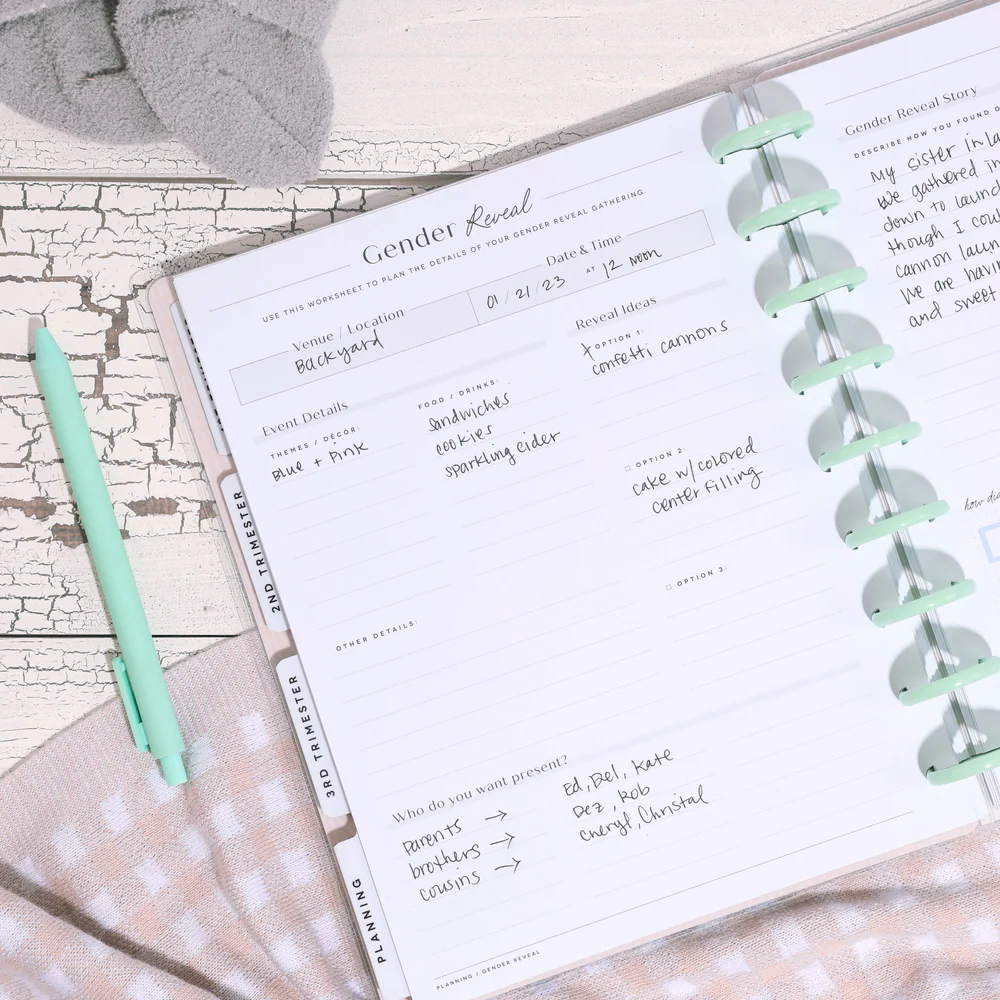 Gender Reveal
USE THIS WORKSHEET TO PLAN THE DETAILS OF YOUR GENDER REVEAL GATHERING.
Venue / Location
Backyard
Date & Time
01 / 21 / 23 AT 12 noon
Event Details
THEMES / DÉCOR:
Blue + Pink
FOOD / DRINKS:
Sandwiches
cookies
sparkling cider
Reveal Ideas
OPTION 1:
confetti cannons
OPTION 2:
cake w/ colored
center filling
OPTION 3:
OTHER DETAILS:
Who do you want present?
parents → Ed, Del, Kate
brothers → Dez, Rob
cousins → Cheryl, Christal
PLANNING / GENDER REVEAL
2ND TRIMESTER
3RD TRIMESTER
PLANNING
Gender Reveal Story
DESCRIBE HOW YOU FOUND
My sister in la
We gathered in
down to launc
though I cou
cannon laun
We are havin
and sweet
how di